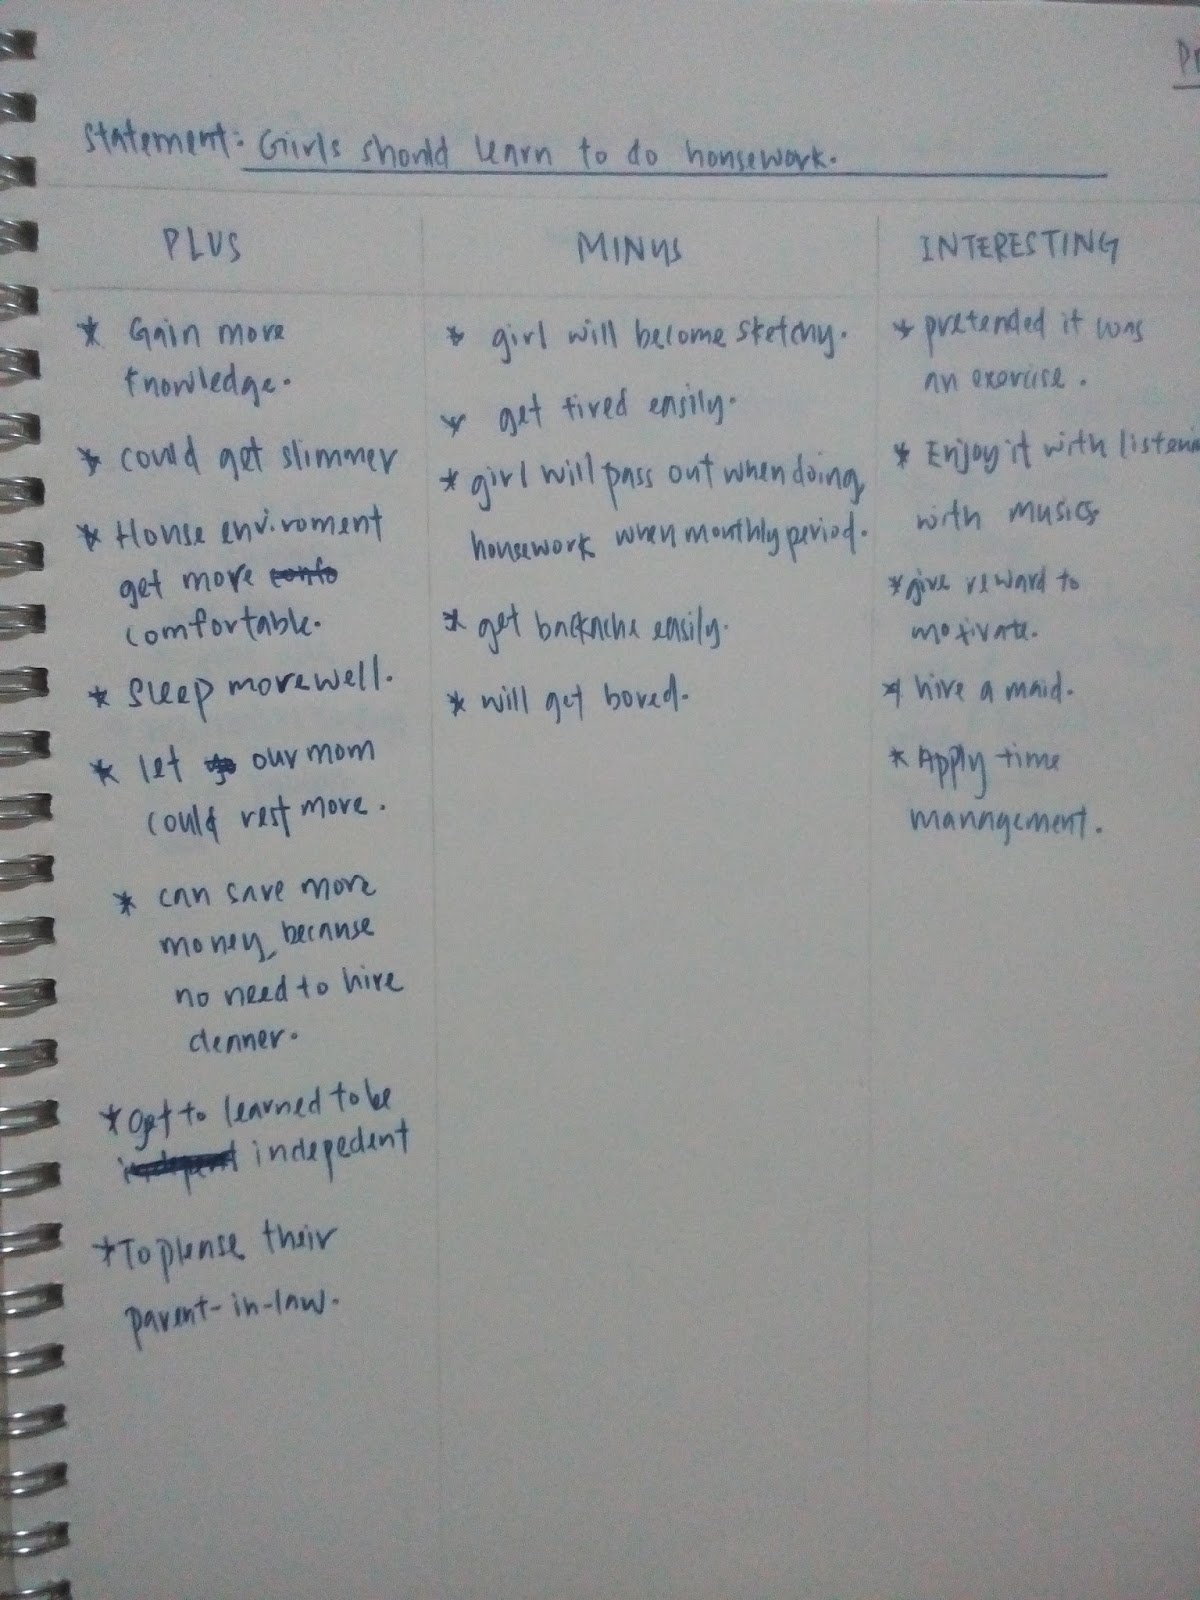 Pr
Statement: Girls should learn to do housework.
PLUS
* Gain more
knowledge.
* could get slimmer
* House enviroment
get more confo
comfortable.
* Sleep more well.
* let our mom
could rest more.
* can save more
money, because
no need to hire
cleaner.
* Get to learned to be
independ indepedent
* To please their
parent-in-law.
MINUS
* girl will become sketchy.
* get tired easily.
* girl will pass out when doing
housework when monthly period.
* get backache easily.
* will get bored.
INTERESTING
* pretended it was
an exercise.
* Enjoy it with listenin
with musics
* give reward to
motivate.
* hire a maid.
* Apply time
management.